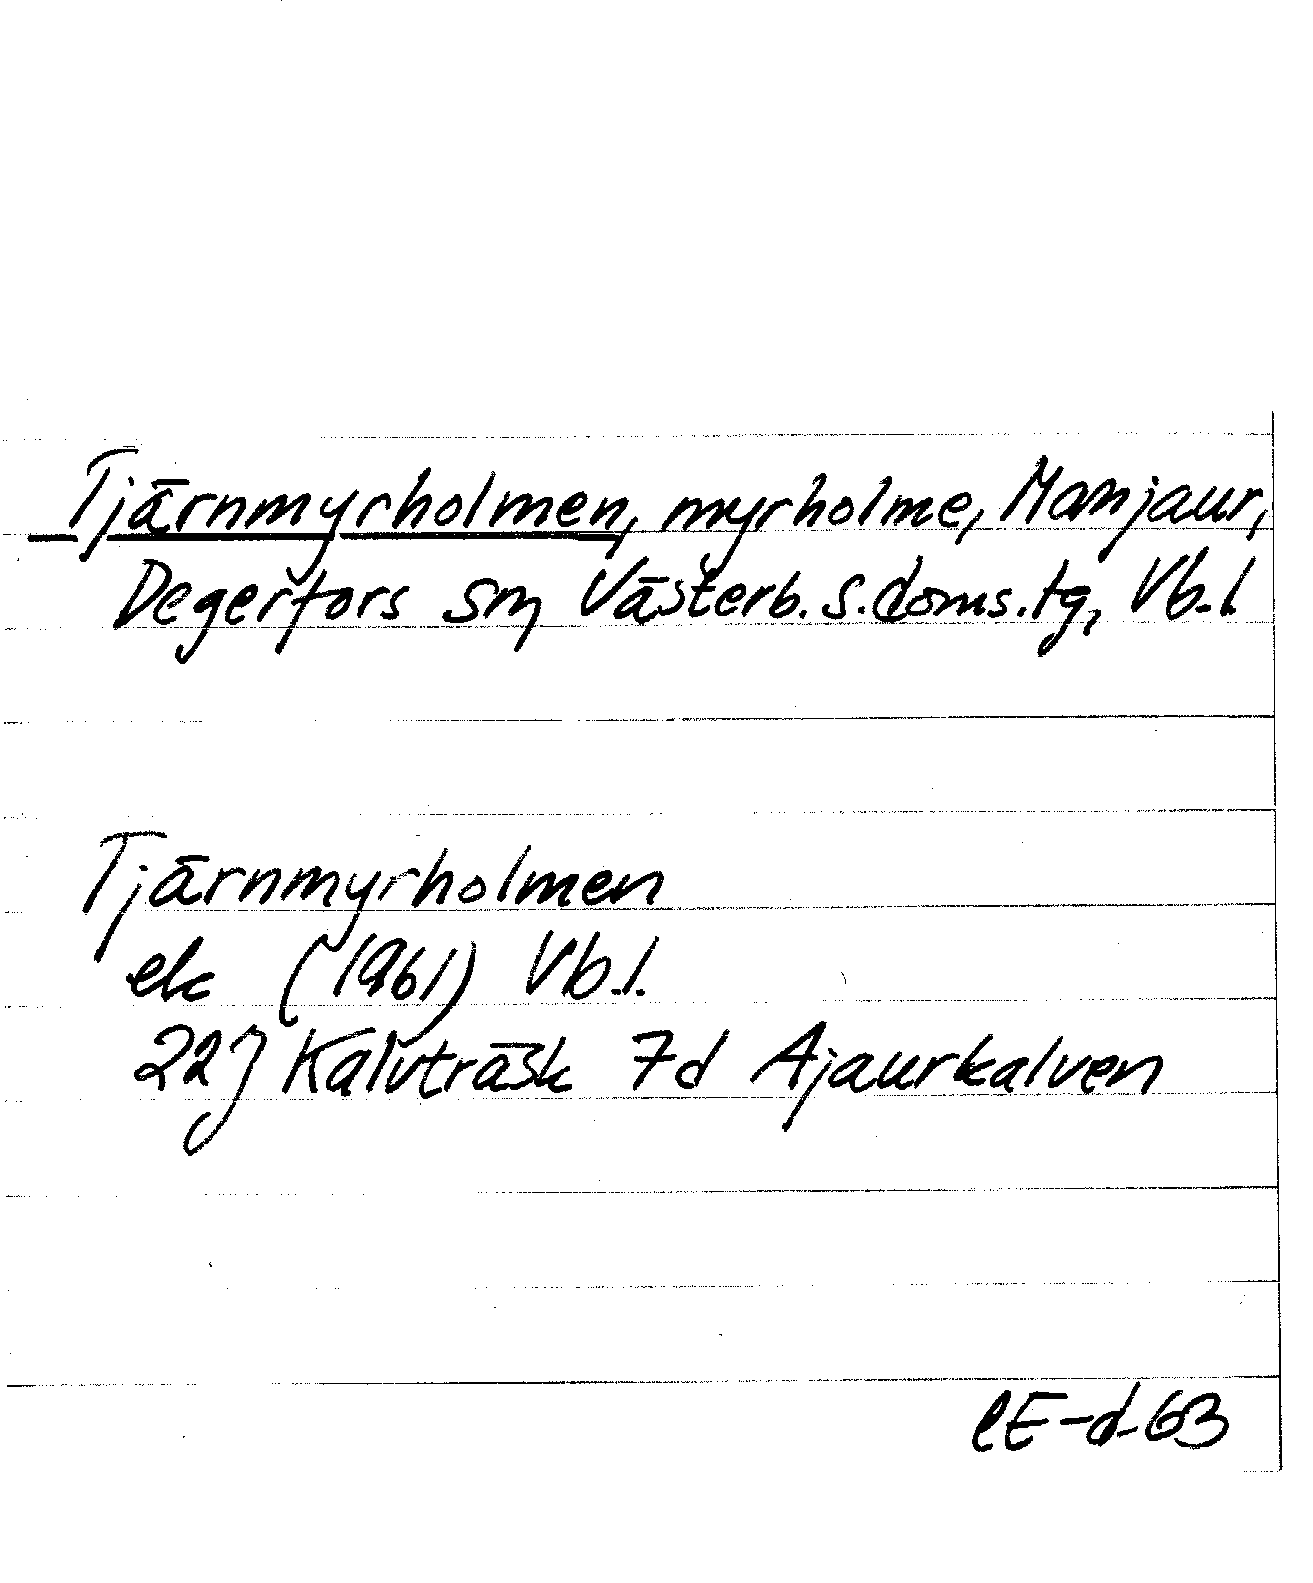 Tjärnmyrholmen, myrholme, Manjaur,
Degerfors sn, Västerb. s. doms. tg, Vb.l.
Tjärnmyrholmen
ek (1961) Vb.l.
22J Kalvträsk 7d Ajaurkalven